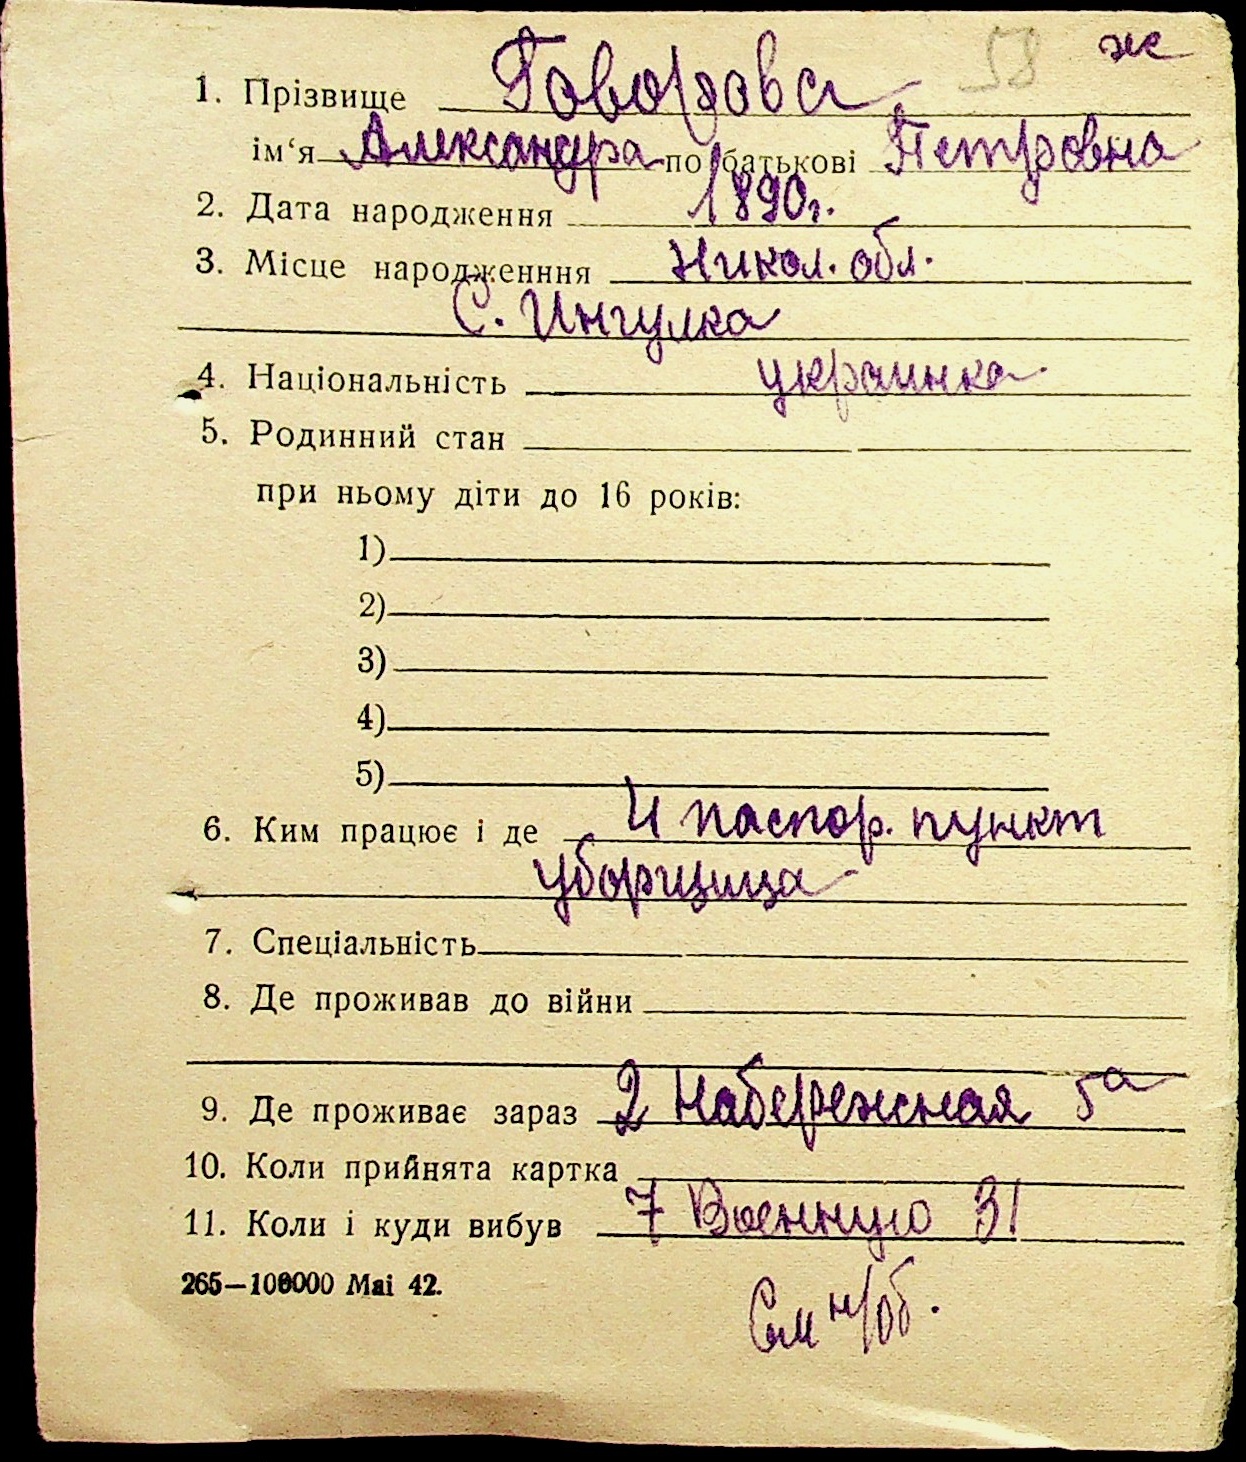 58 ж
1. Прізвище Говорова
ім‘я Александра по батькові Петровна
2. Дата народження 1890г.
3. Місце народженння Никол. обл.
С. Ингулка
4. Національність украинка
5. Родинний стан
при ньому діти до 16 років:
1)
2)
3)
4)
5)
6. Ким працює і де 4 паспор. пункт
уборщица
7. Спеціальність
8. Де проживав до війни
9. Де проживає зараз 2 Набережная 5а
10. Коли прийнята картка
11. Коли і куди вибув 7 Военную 31
265—100000 Mai 42.
См н/об.